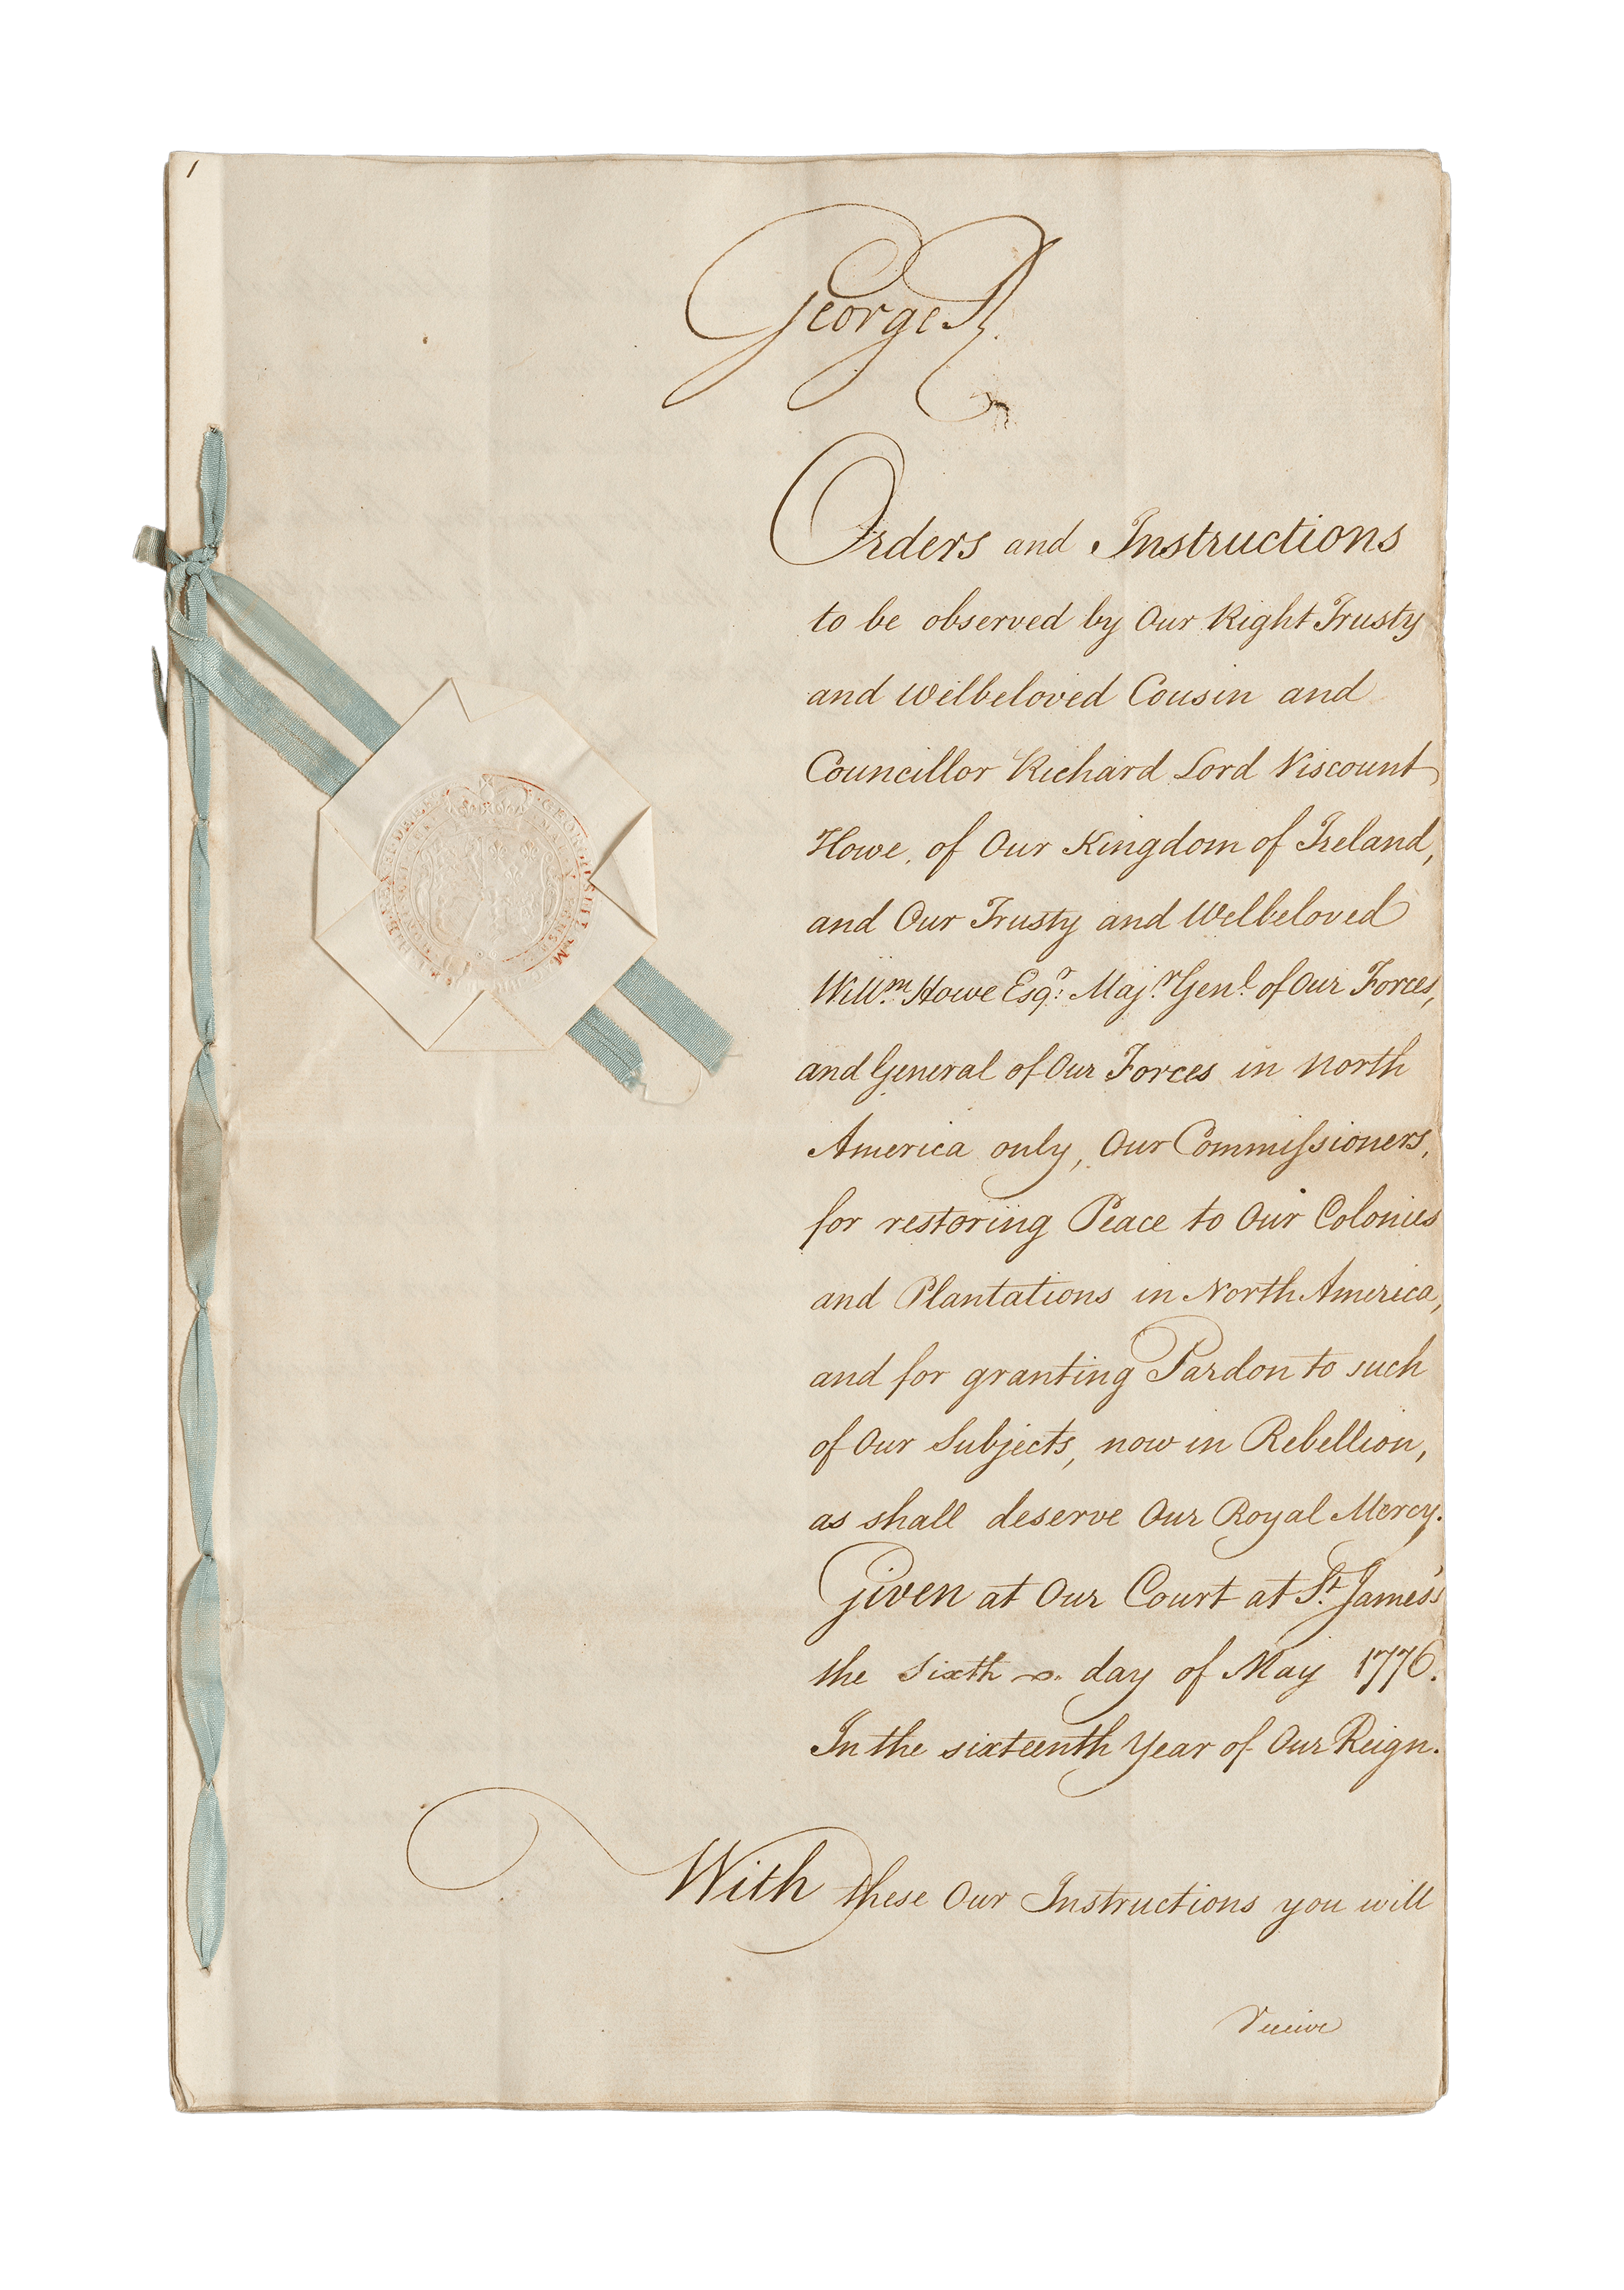 1
George R.
Orders and Instructions
to be observed by Our Right Trusty
and Welbeloved Cousin and
Councillor Richard Lord Viscount
Howe, of Our Kingdom of Ireland,
and Our Trusty and Welbeloved
Willm. Howe Esqr. Majr. Genl. of Our Forces,
and General of Our Forces in North
America only, Our Commiſsioners,
for restoring Peace to Our Colonies
and Plantations in North America,
and for granting Pardon to such
of Our Subjects, now in Rebellion,
as shall deserve Our Royal Mercy.
Given at Our Court at St. James's
the Sixth day of May 1776.
In the sixteenth Year of Our Reign.
With these Our Instructions you will
receive